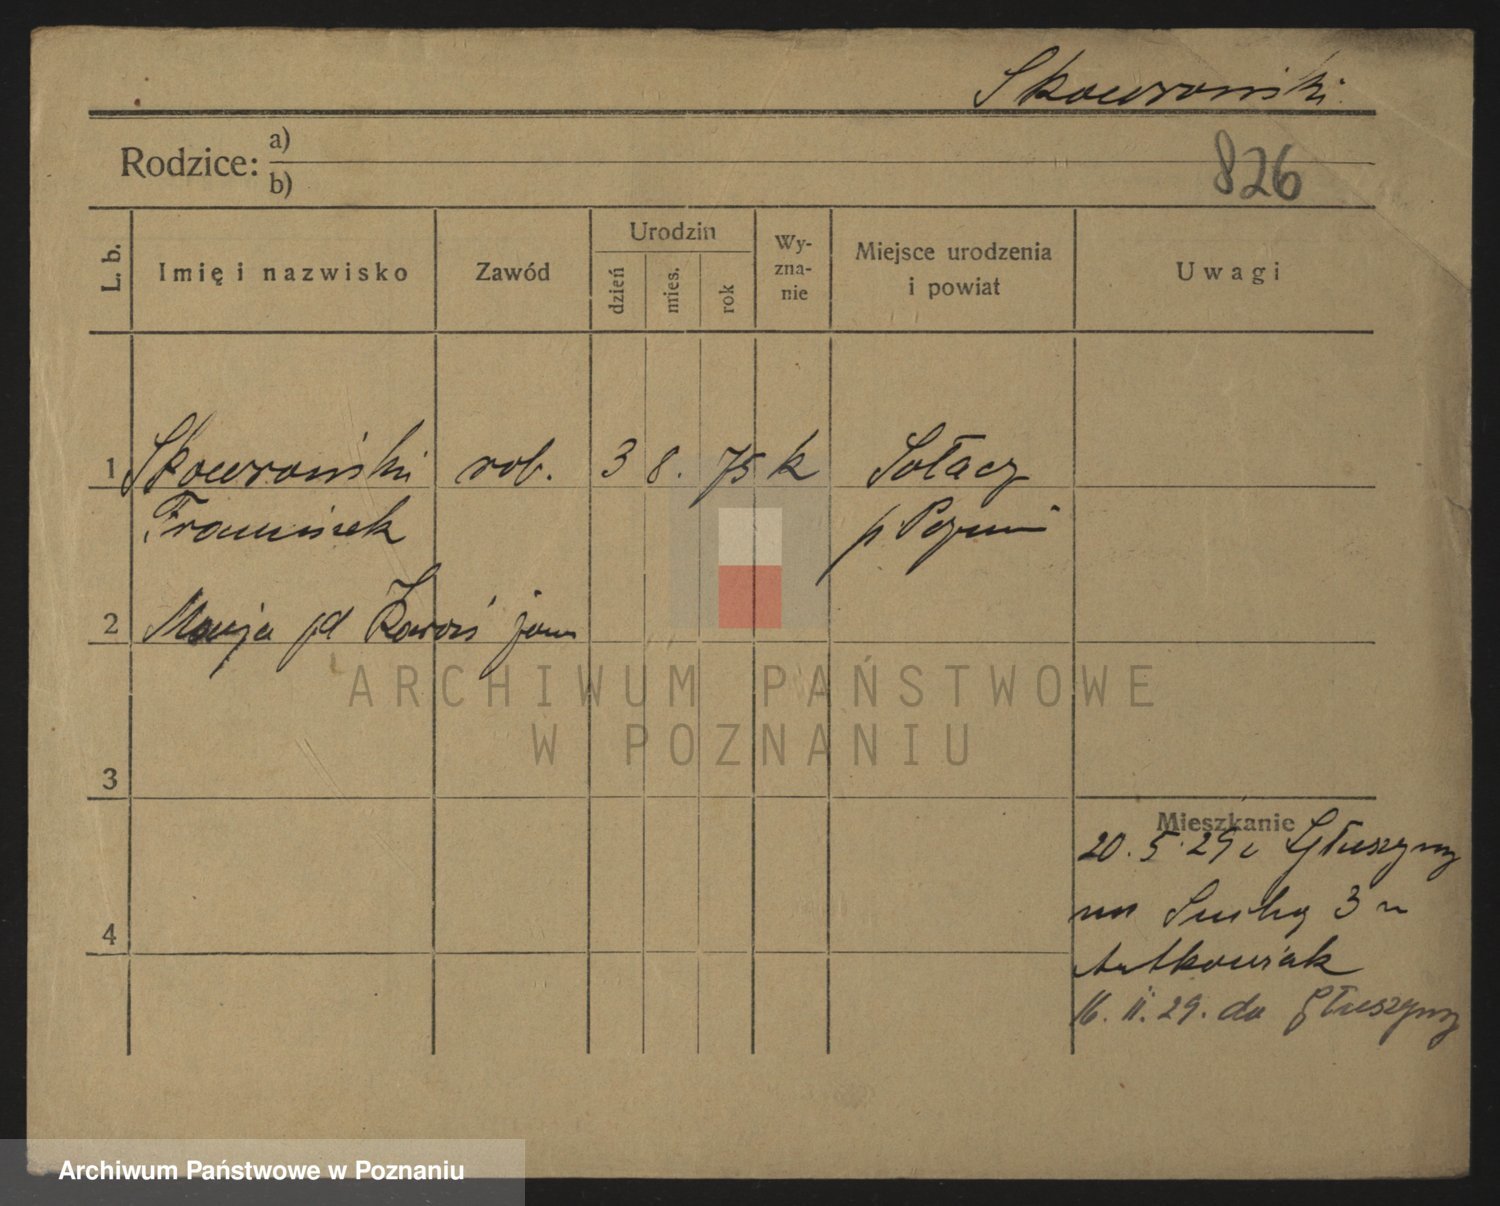 Skowroński
Rodzice: a)
b)
826
L. b.
Imię i nazwisko
Zawód
Urodzin
dzień
mies.
rok
Wy-
zna-
nie
Miejsce urodzenia
i powiat
Uwagi
1 Skowroński rob. 3 8. 75 k Sołacz
Franciszek p. Poznań
2 Maryja
3
4
Mieszkanie
20. 5. 29 Głuszyny
Suchą 3
Antkowiak
16. 11. 29. do Głuszyny
ARCHIWUM PAŃSTWOWE
W POZNANIU
Archiwum Państwowe w Poznaniu